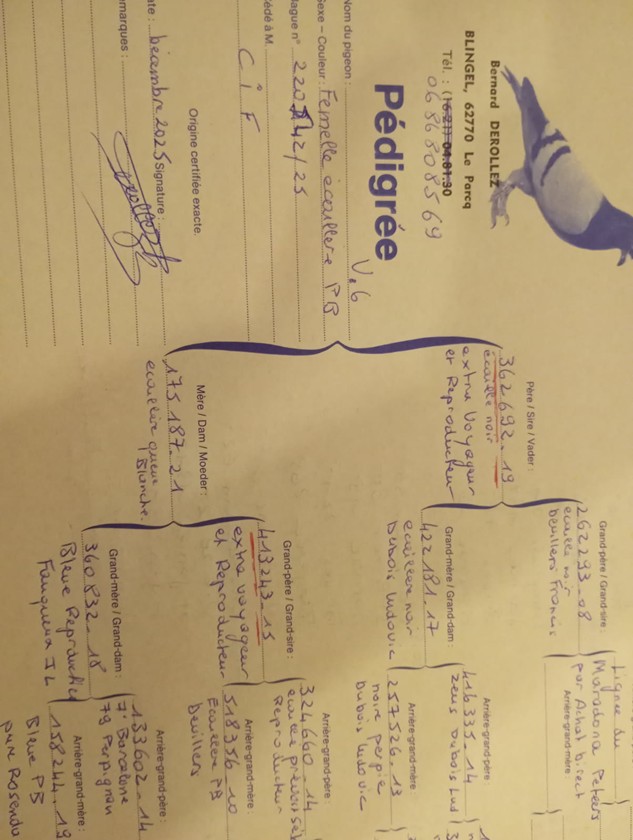 Bernard DEROLLEZ
BLINGEL, 62770 Le Parcq
Tél. : (16-21) 04.81.30
0686808569
Pédigrée
V.6
Nom du pigeon :
Sexe – Couleur : Femelle écaillère PB
Bague n° 220742/25
Cédé à M.
CIF
Origine certifiée exacte.
Date : Décembre 2025 Signature :
Remarques :
Père / Sire / Vader :
362692.19
écaillé noir
extra voyageur
et Reproducteur
Mère / Dam / Moeder :
175187.21
écaillée queue
Blanche.
Grand-père / Grand-sire :
262293.08
écaillé noir
Devillers Francis
Grand-mère / Grand-dam :
422181.17
écaillée noir
Dubois Ludovic
Grand-père / Grand-sire :
413243.15
extra voyageur
et Reproducteur
Grand-mère / Grand-dam :
360832.18
Bleue Reproductrice
Fauqueux JL
Ligne du
Maradona Peters
par Achat Direct
Arrière-grand-mère
Arrière-grand-père
416335.14
Zeus Dubois Lud
Arrière-grand-mère
257526.13
noire perpie
Dubois Ludovic
Arrière-grand-père
324660.14
Reproducteur
Arrière-grand-mère :
518356.10
Ecaillée PB
Devillers
Arrière-grand-père :
133602.14
7° Barcelone
79 Perpignan
Arrière-grand-mère :
158244.19
Bleue PB
pure Rosendo